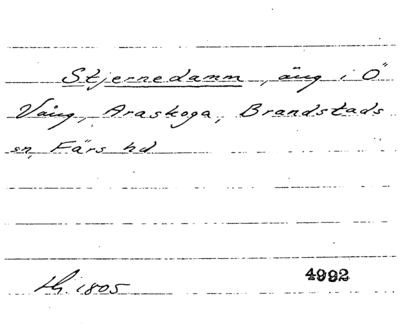 Stjernedamm, äng i Ö
Vång, Araskoga, Brandstads
sn, Färs hd
1805
4992